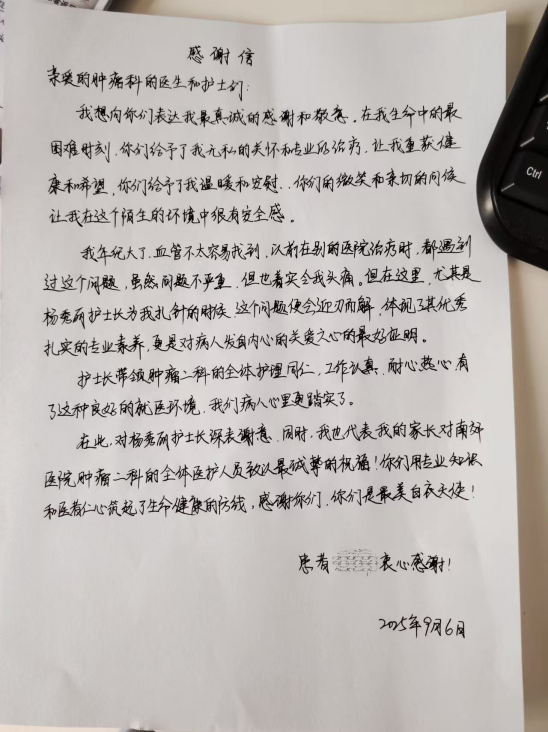 感谢信
亲爱的肿瘤科的医生和护士们：
我想向你们表达我最真诚的感谢和敬意。在我生命中的最
困难时刻，你们给予了我无私的关怀和专业的治疗，让我重获健
康和希望，你们给予了我温暖和安慰，你们的微笑和亲切的问候
让我在这个陌生的环境中很有安全感。
我年纪大了，血管不太容易找到，以前在别的医院治疗时，都遇到
过这个问题，虽然问题不严重，但也着实令我头痛。但在这里，尤其是
杨秀丽护士长为我扎针的时候，这个问题便会迎刃而解，体现了其优秀
扎实的专业素养，更是对病人发自内心的关爱之心的最好证明。
护士长带领肿瘤二科的全体护理同仁，工作认真，耐心热心，有
了这种良好的就医环境，我们病人心里更踏实了。
在此，对杨秀丽护士长深表谢意，同时，我也代表我的家长对南郊
医院肿瘤二科的全体医护人员致以最诚挚的祝福！你们用专业知识
和医者仁心筑起了生命健康的防线，感谢你们，你们是最美白衣天使！
患者 衷心感谢！
2025年9月6日
Ctrl